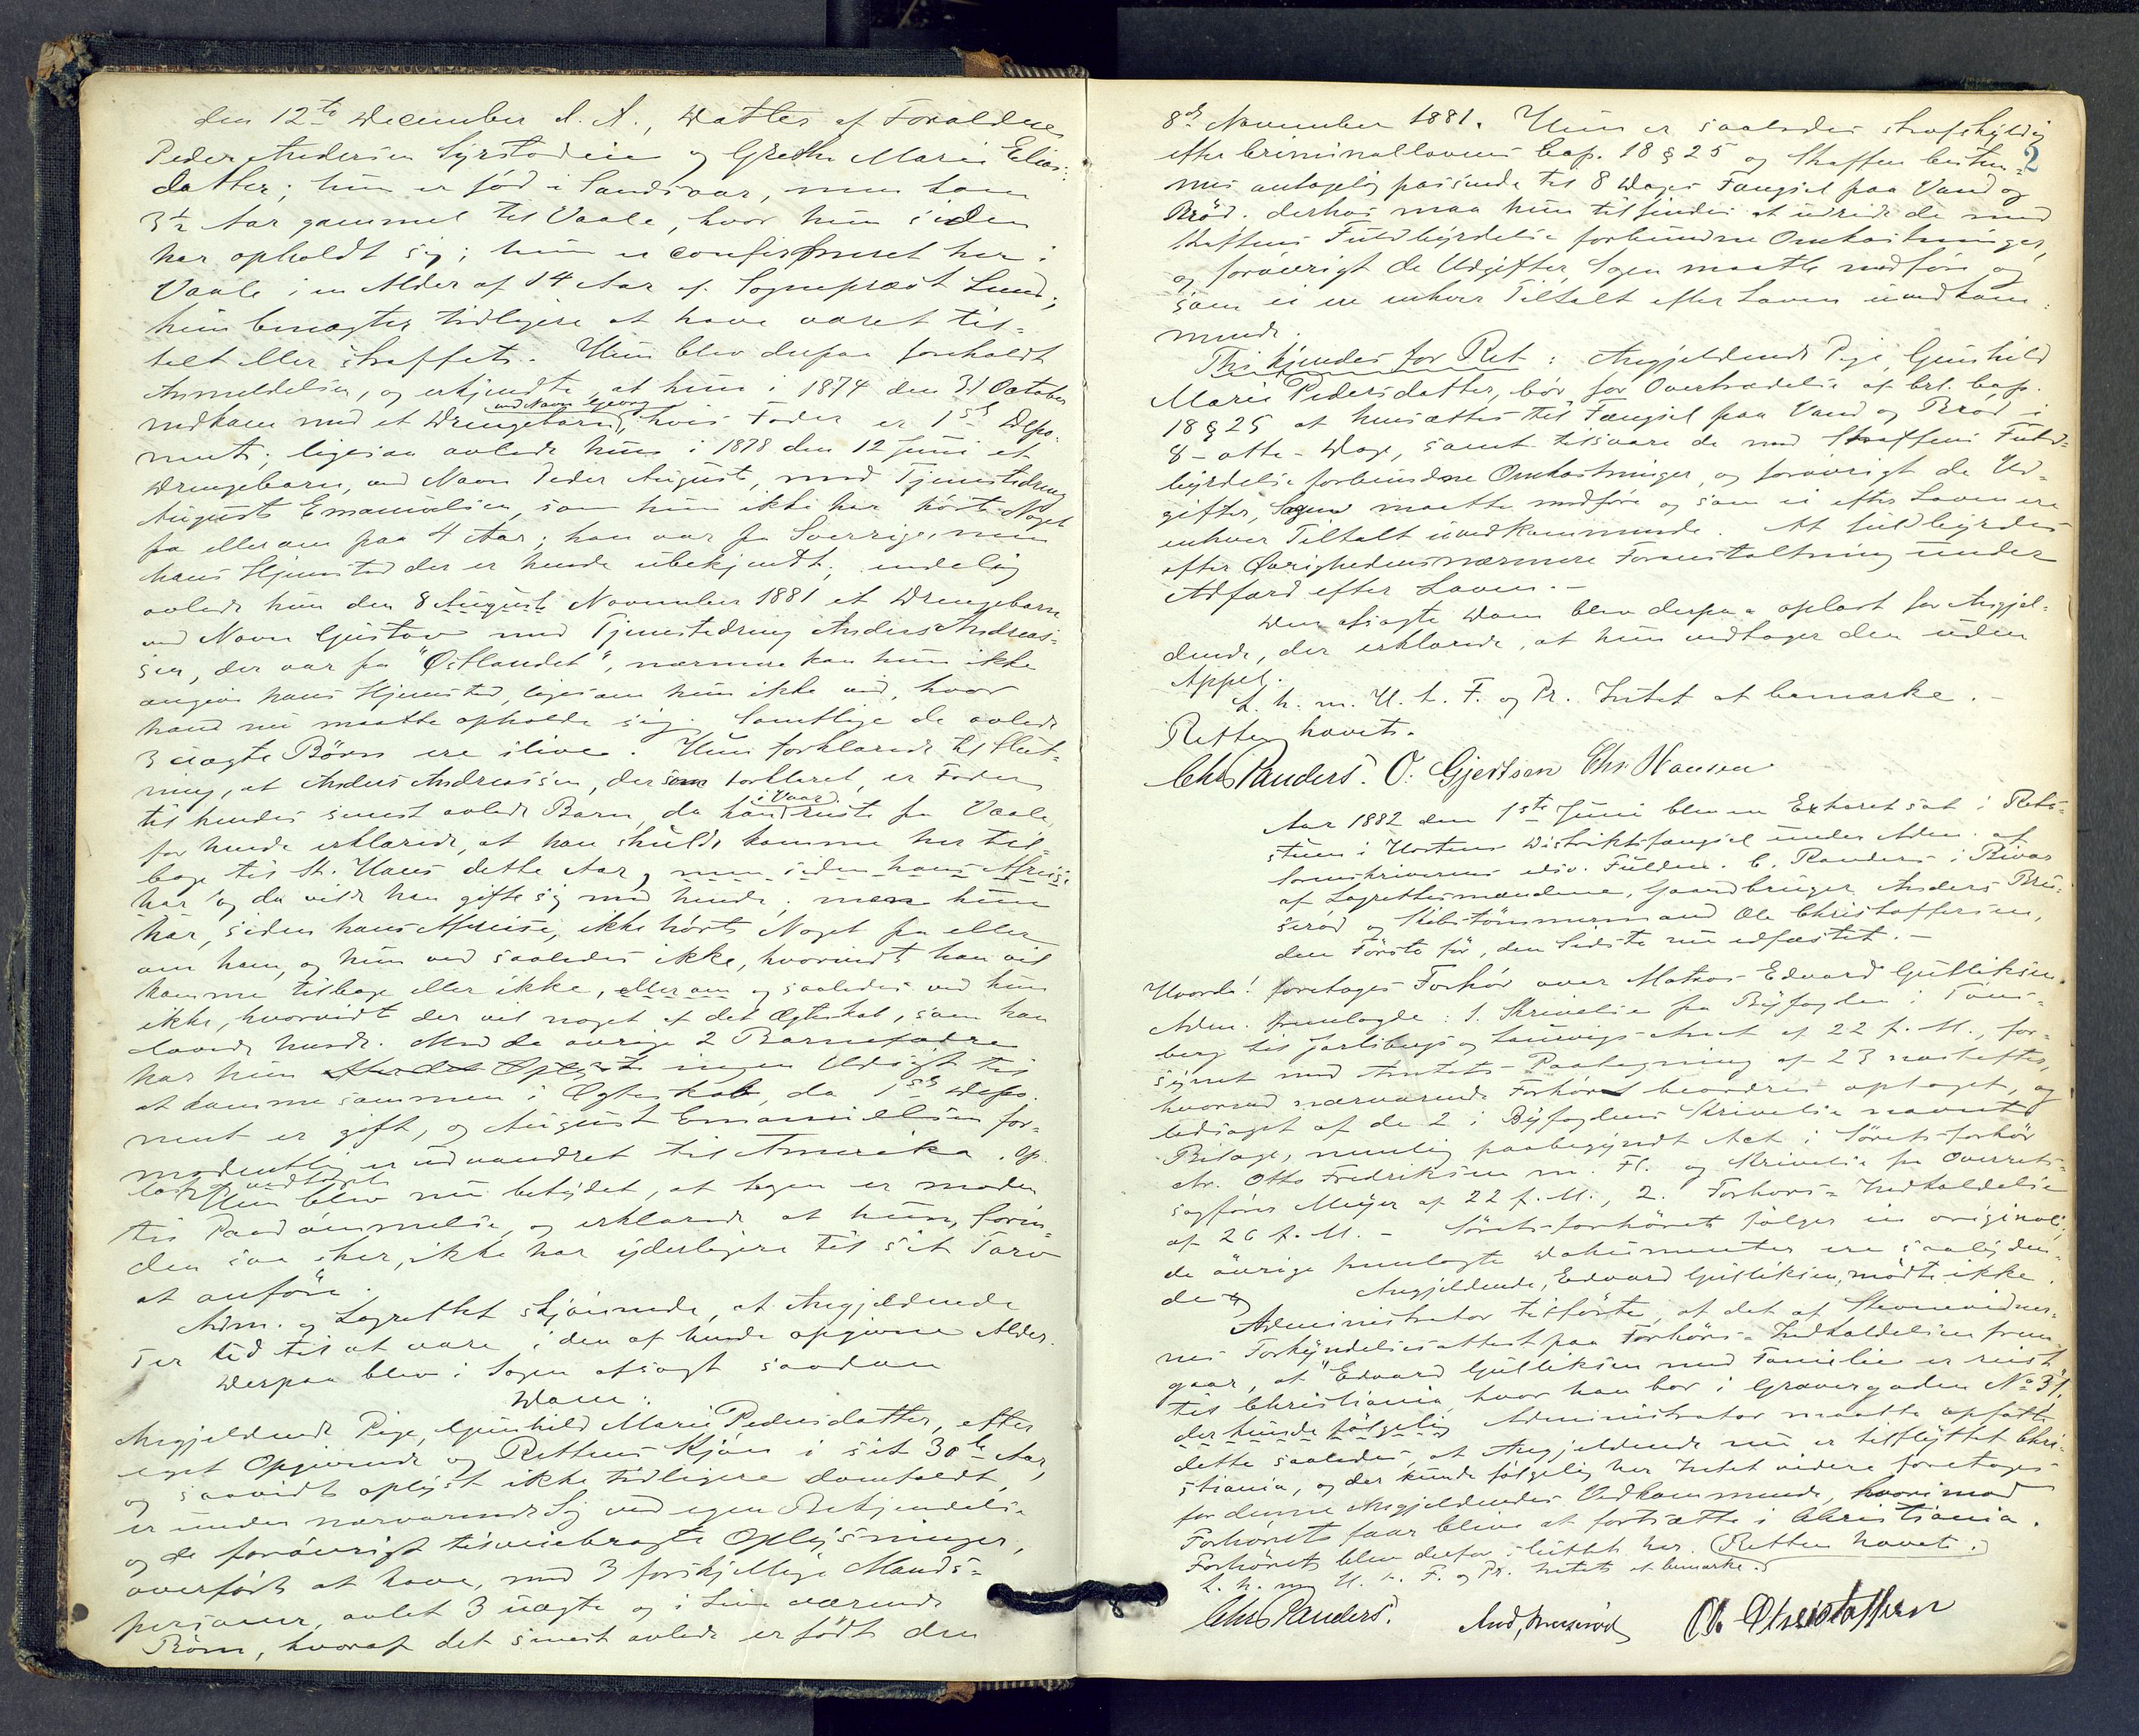 den 12te December d. A., Datter af Forældrene
Peder Andersen Syrstadeie og Grethe Marie Elias-
datter; hun er fød i Sandsvær, men kom
3½ Aar gammel til Vaale, hvor hun siden
har opholdt sig; hun er confirmeret her i
Vaale i en Alder af 14 Aar af Sogneprest Lund;
hun benægter tidligere at have været til-
talt eller straffet. Hun blev derpaa foreholdt
Anmeldelsen, og erkjendte, at hun i 1874 den 31 October
nedkom med et Drengebarn, ved Navn Georg, hvis Fader er 1ste Depo-
nent; ligesaa avlede hun i 1878 den 12 Juni et
Drengebarn, ved Navn Peder August, med Tjenestedreng
August Emanuelsen, som hun ikke har hørt Noget
fra eller om paa 4 Aar; han var fra Sverrige, men
hans Hjemsted der er hende ubekjendt; endelig
avlede hun den 8 August November 1881 et Drengebarn
ved Navn Gustav med Tjenestedreng Anders Andreas-
sen, der var fra "Østlandet", nærmere kan hun ikke
angive hans Hjemsted, ligesom hun ikke ved, hvor
hand nu maatte opholde sig. Samtlige de avlede
3 uægte Børn ere ilive. Hun forklarede til Slut-
ning, at Anders Andreassen, der som forklaret, er Fader
til hendes senest avlede Barn, da han i Vaar reiste fra Vaale,
for hende erklærede, at han skulde komme her til-
bage til St. Hans dette Aar, men siden hans Afreise
har og da vilde han gifte sig med hende; men hun
har, siden hans Afreise, ikke hørt Noget fra eller
om ham, og hun ved saaledes ikke, hvorvidt han vil
komme tilbage eller ikke, eller om og saaledes ved hun
ikke, hvorvidt der vil noget af det Ægteskab, som han
lovede hende. Med de øvrige 2 Barnefædre
har hun efter det Oplyste ingen Udsigt til
at komme sammen i Ægteskab, da 1ste Depo-
nent er gift, og August Emanuelsen for-
modentlig er udvandret til Amerika. Op-
læst vedtaget
Hun blev nu betydet, at Sagen er moden
til Paadømmelse, og erklærede at hun, forin-
den saa sker, ikke har yderligere til sit Tarv
at anføre.
Adm. og Lagrettet skjønnede, at Angjeldende
ser ud til at være i den af hende opgivne Alder.
Derpaa blev i Sagen afsagt saadan
Dom:
Angjeldende Pige, Gunhild Marie Pedersdatter, efter
eget Opgivende og Rettens Skjøn i sit 30te Aar,
og saavidt oplyst ikke tidligere domfældt,
er under nærværende Sag ved egen Bekjendelse
og de forøvrigt tilveiebragte Oplysninger,
overført at have, med 3 forskjellige Mands-
personer, avlet 3 uægte og i Live værende
Børn, hvoraf det senest avlede er født den
2
8de November 1881. Hun er saaledes strafskyldig
efter Criminallovens Cap. 18 § 25 og Straffen bestem-
mes antagelig passende til 8 Dages Fængsel paa Vand og
Brød. Derhos maa hun tilfindes at udrede de med
Straffens Fuldbyrdelse forbundne Omkostninger,
og forøvrigt de Udgifter, Sagen maatte medføre og
som ei ere enhver Tiltalt efter Loven uvedkom-
mende.
Thi kjendes for Ret: Angjeldende Pige, Gunhild
Marie Pedersdatter, bør for Overtrædelse af Crl. Cap.
18 § 25 at hensættes til Fængsel paa Vand og Brød i
8 – otte – Dage, samt tilsvare de med Straffens Fuld-
byrdelse forbundne Omkostninger, og forøvrigt de Ud-
gifter, Sagen maatte medføre og som ei efter Loven ere
enhver Tiltalt uvedkommende. At fuldbyrdes
efter Øvrighedens nærmere Foranstaltning under
Adfærd efter Loven. –
Den afsagte Dom blev derpaa oplæst for Angjel-
dende, der erklærede, at hun vedtager den uden
Appel.
L. h. m. U. t. F. og Pr. Intet at bemærke. –
Retten hævet.
Chr Randers. O. Gjertsen Chr Hansen
Aar 1882 den 1ste Juni blev en Extraret sat i Rets-
stuen i Hortens Distriktsfængsel under Adm. af
Sorenskriverens edsv. Fuldm. C. Randers i Bivær
af Lagrettesmændene, Gaardbruger Anders Bru-
serød og Skibstømmermand Ole Christoffersen,
den Første før, den Sidste nu edfæstet. –
Hvorda! foretoges Forhør over Matros Edvard Gulliksen.
Adm. fremlagde: 1. Skrivelse fra Byfogden i Tøns-
berg til Jarlsbergs og Laurvigs Amt af 22 f. M., for-
synet med Amtets Paategning af 23 næstefter,
hvorved nærværende Forhør beordres optaget, og
ledsaget af de 2 i Byfogdens Skrivelse nævnte
Bilage, nemlig paabegyndt Act i Sørets-forhør
ctr. Otto Fredriksen m. Fl. og Skrivelse fra Overrets-
sagfører Meyer af 22 f. M., 2. Forhørs-Indkaldelse
af 26 f. M. – Sørets-forhøret følger in originali;
de øvrige fremlagte Dokumenter ere saalyden-
de
Angjeldende, Edvard Gulliksen, mødte ikke.
Administrator tilførte, at det af Stevnevidner-
nes Forkyndelsesattest paa Forhørs-Indkaldelsen frem-
gaar, at "Edvard Gulliksen med Familie er reist
til Christiania hvor han bor i Grøvergaden No 31.
der kunde følgelig Administrator maatte opfatte
dette saaledes, at Angjeldende nu er tilflyttet Chri-
stiania, og der kunde følgelig her Intet videre foretages
for denne Angjeldendes Vedkommende, hvorimod
Forhøret faar blive at fortsætte i Christiania.
Forhøret blev derfor sluttet her. Retten hævet.
L. h. m. U. t. F. og Pr. Intet at bemærke.
Chr Randers. And, Bruserød Ole Christoffersen